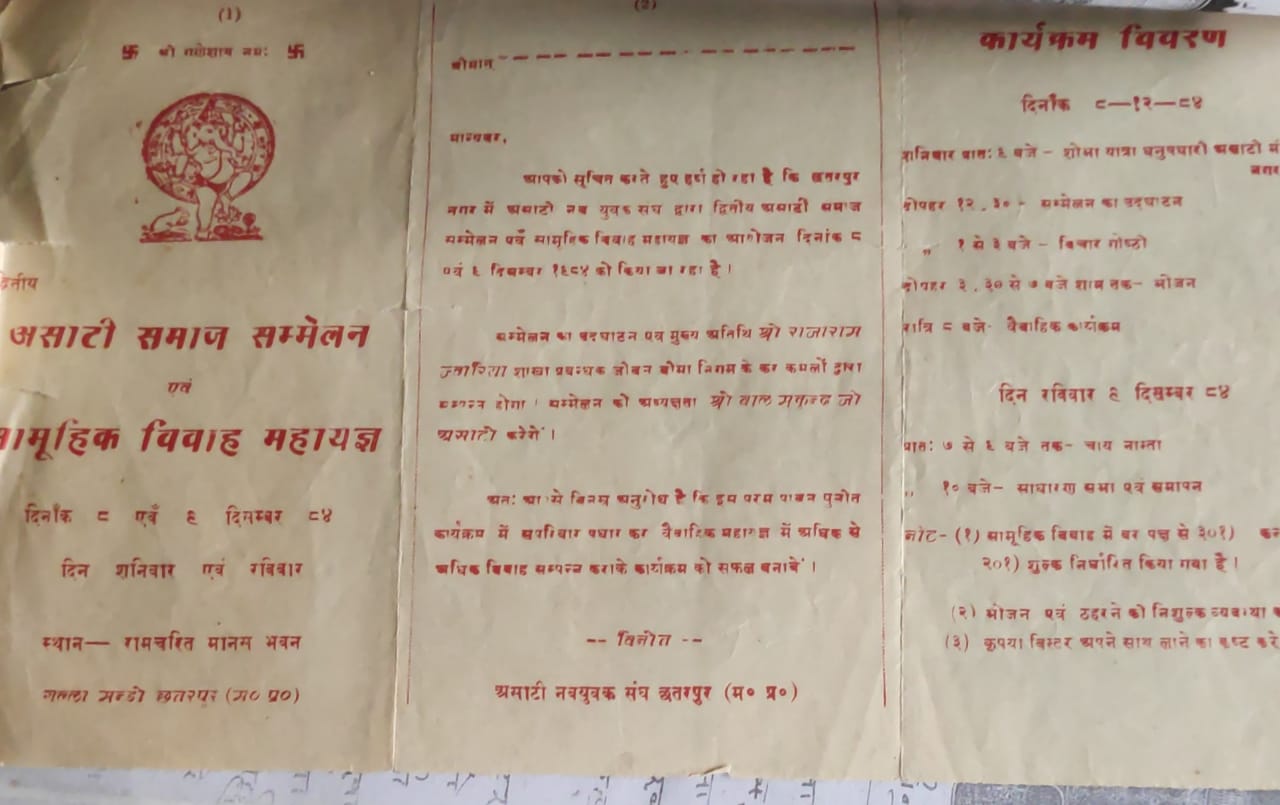 (1)
卐 श्री गणेशाय नमः 卐
द्वितीय
असाटी समाज सम्मेलन
एवं
सामूहिक विवाह महायज्ञ
दिनाँक ८ एवँ ९ दिसम्बर ८४
दिन शनिवार एवं रविवार
स्थान— रामचरित मानस भवन
गल्ला मन्डी छतरपुर (म० प्र०)
(2)
श्रीमान्
मान्यवर,
आपको सूचित करते हुए हर्ष हो रहा है कि छतरपुर
नगर में असाटी नव युवक संघ द्वारा द्वितीय असाटी समाज
सम्मेलन एवँ सामूहिक विवाह महायज्ञ का आयोजन दिनांक ८
एवं ९ दिसम्बर १९८४ को किया जा रहा है।
सम्मेलन का उदघाटन एवं मुख्य अतिथि श्री राजाराम
शाखा प्रबन्धक जीवन बीमा निगम के कर कमलों द्वारा
सम्पन्न होगा। सम्मेलन की अध्यक्षता श्री बाल मुकुन्द जी
असाटी करेगें।
अतः आपसे विनम्र अनुरोध है कि इस परम पावन पुनीत
कार्यक्रम में सपरिवार पधार कर वैवाहिक महायज्ञ में अधिक से
अधिक विवाह सम्पन्न कराके कार्यक्रम को सफल बनावें।
-- विनीत --
असाटी नवयुवक संघ छतरपुर (म० प्र०)
कार्यक्रम विवरण
दिनाँक ८—१२—८४
शनिवार प्रातः ९ बजे - शोभा यात्रा धनुषधारी असाटी मं
नगर
दोपहर १२.३० - सम्मेलन का उदघाटन
,, १ से ३ बजे - विचार गोष्ठी
दोपहर ३.३० से ७ बजे शाम तक- भोजन
रात्रि ८ बजे- वैवाहिक कार्यक्रम
दिन रविवार ९ दिसम्बर ८४
प्रातः ७ से ९ बजे तक- चाय नास्ता
,, १० बजे- साधारण सभा एवं समापन
नोट- (१) सामूहिक विवाह में वर पक्ष से ३०१)
२०१) शुल्क निर्धारित किया गया है।
(२) भोजन एवं ठहरने की निशुल्क व्यवस्था
(३) कृपया बिस्टर अपने साथ लाने का कष्ट करे